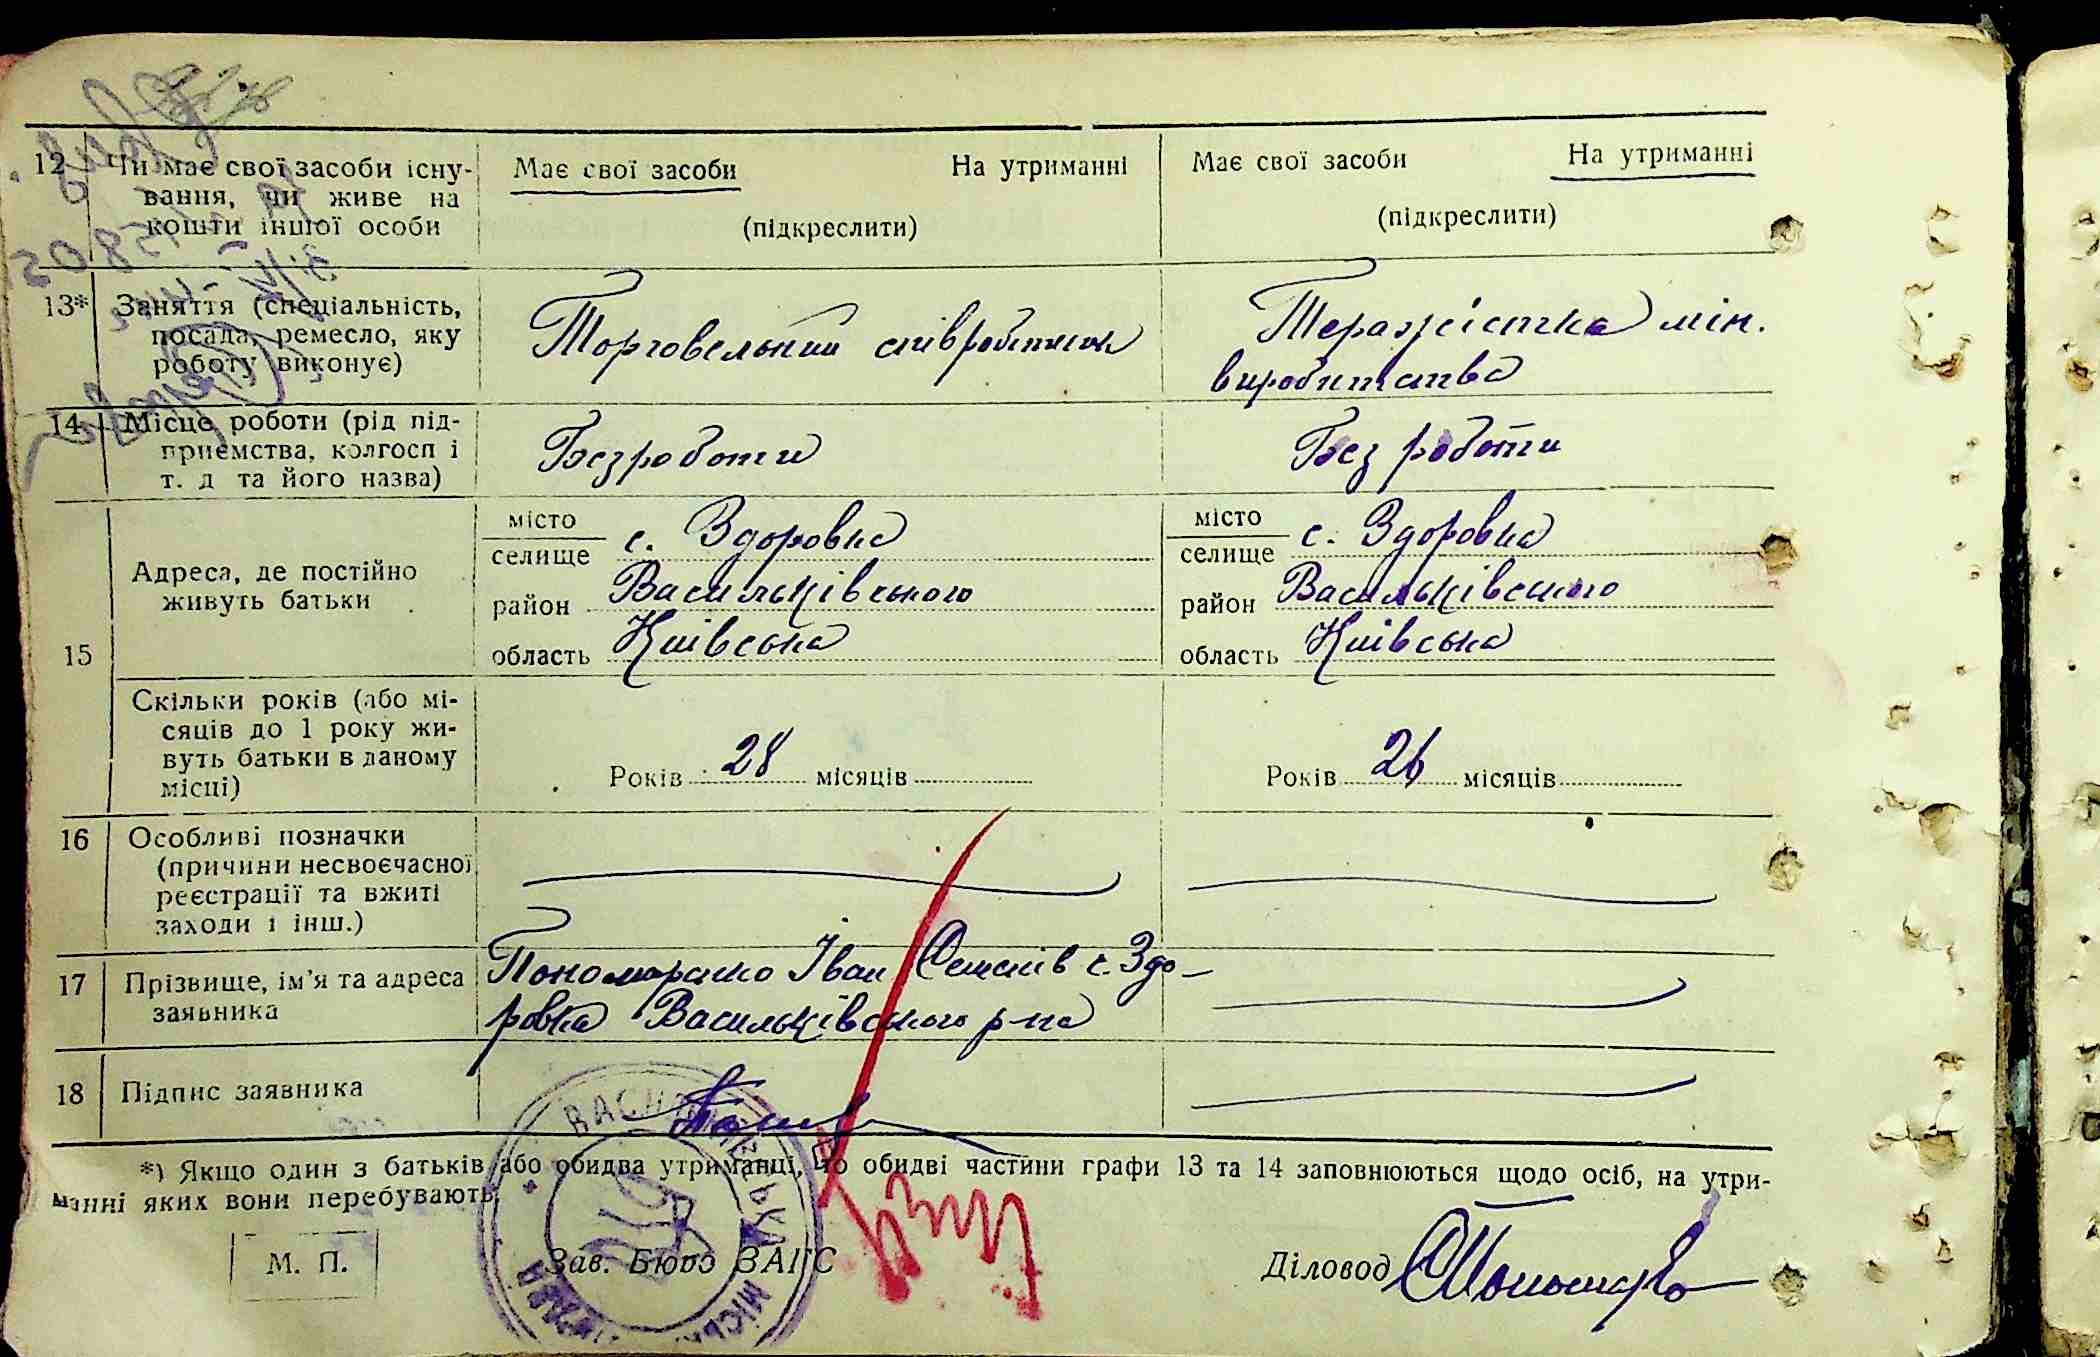 12 Чи має свої засоби існу-
вання, чи живе на
кошти іншої особи
Має свої засоби На утриманні
(підкреслити)
Має свої засоби На утриманні
(підкреслити)
13* Заняття (спеціальність,
посада, ремесло, яку
роботу виконує)
Торговельний співробітник
мін.
виробництва
14 Місце роботи (рід під-
приємства, колгосп і
т. д та його назва)
Без роботи
Без роботи
15
Адреса, де постійно
живуть батьки
місто
селище с. Здоровка
район Васильківського
область Київська
місто
селище с. Здоровка
район Васильківського
область Київська
Скільки років (або мі-
сяців до 1 року жи-
вуть батьки в даному
місці)
Років 28 місяців
Років 26 місяців
16 Особливі позначки
(причини несвоєчасної
реєстрації та вжиті
заходи і інш.)
17 Прізвище, ім'я та адреса
заявника
Пономаренко Іван с. Здо-
ровка Васильківського р-на
18 Підпис заявника
*) Якщо один з батьків або обидва утриманці, то обидві частини графи 13 та 14 заповнюються щодо осіб, на утри-
манні яких вони перебувають
М. П.
Зав. Бюро ЗАГС
Діловод